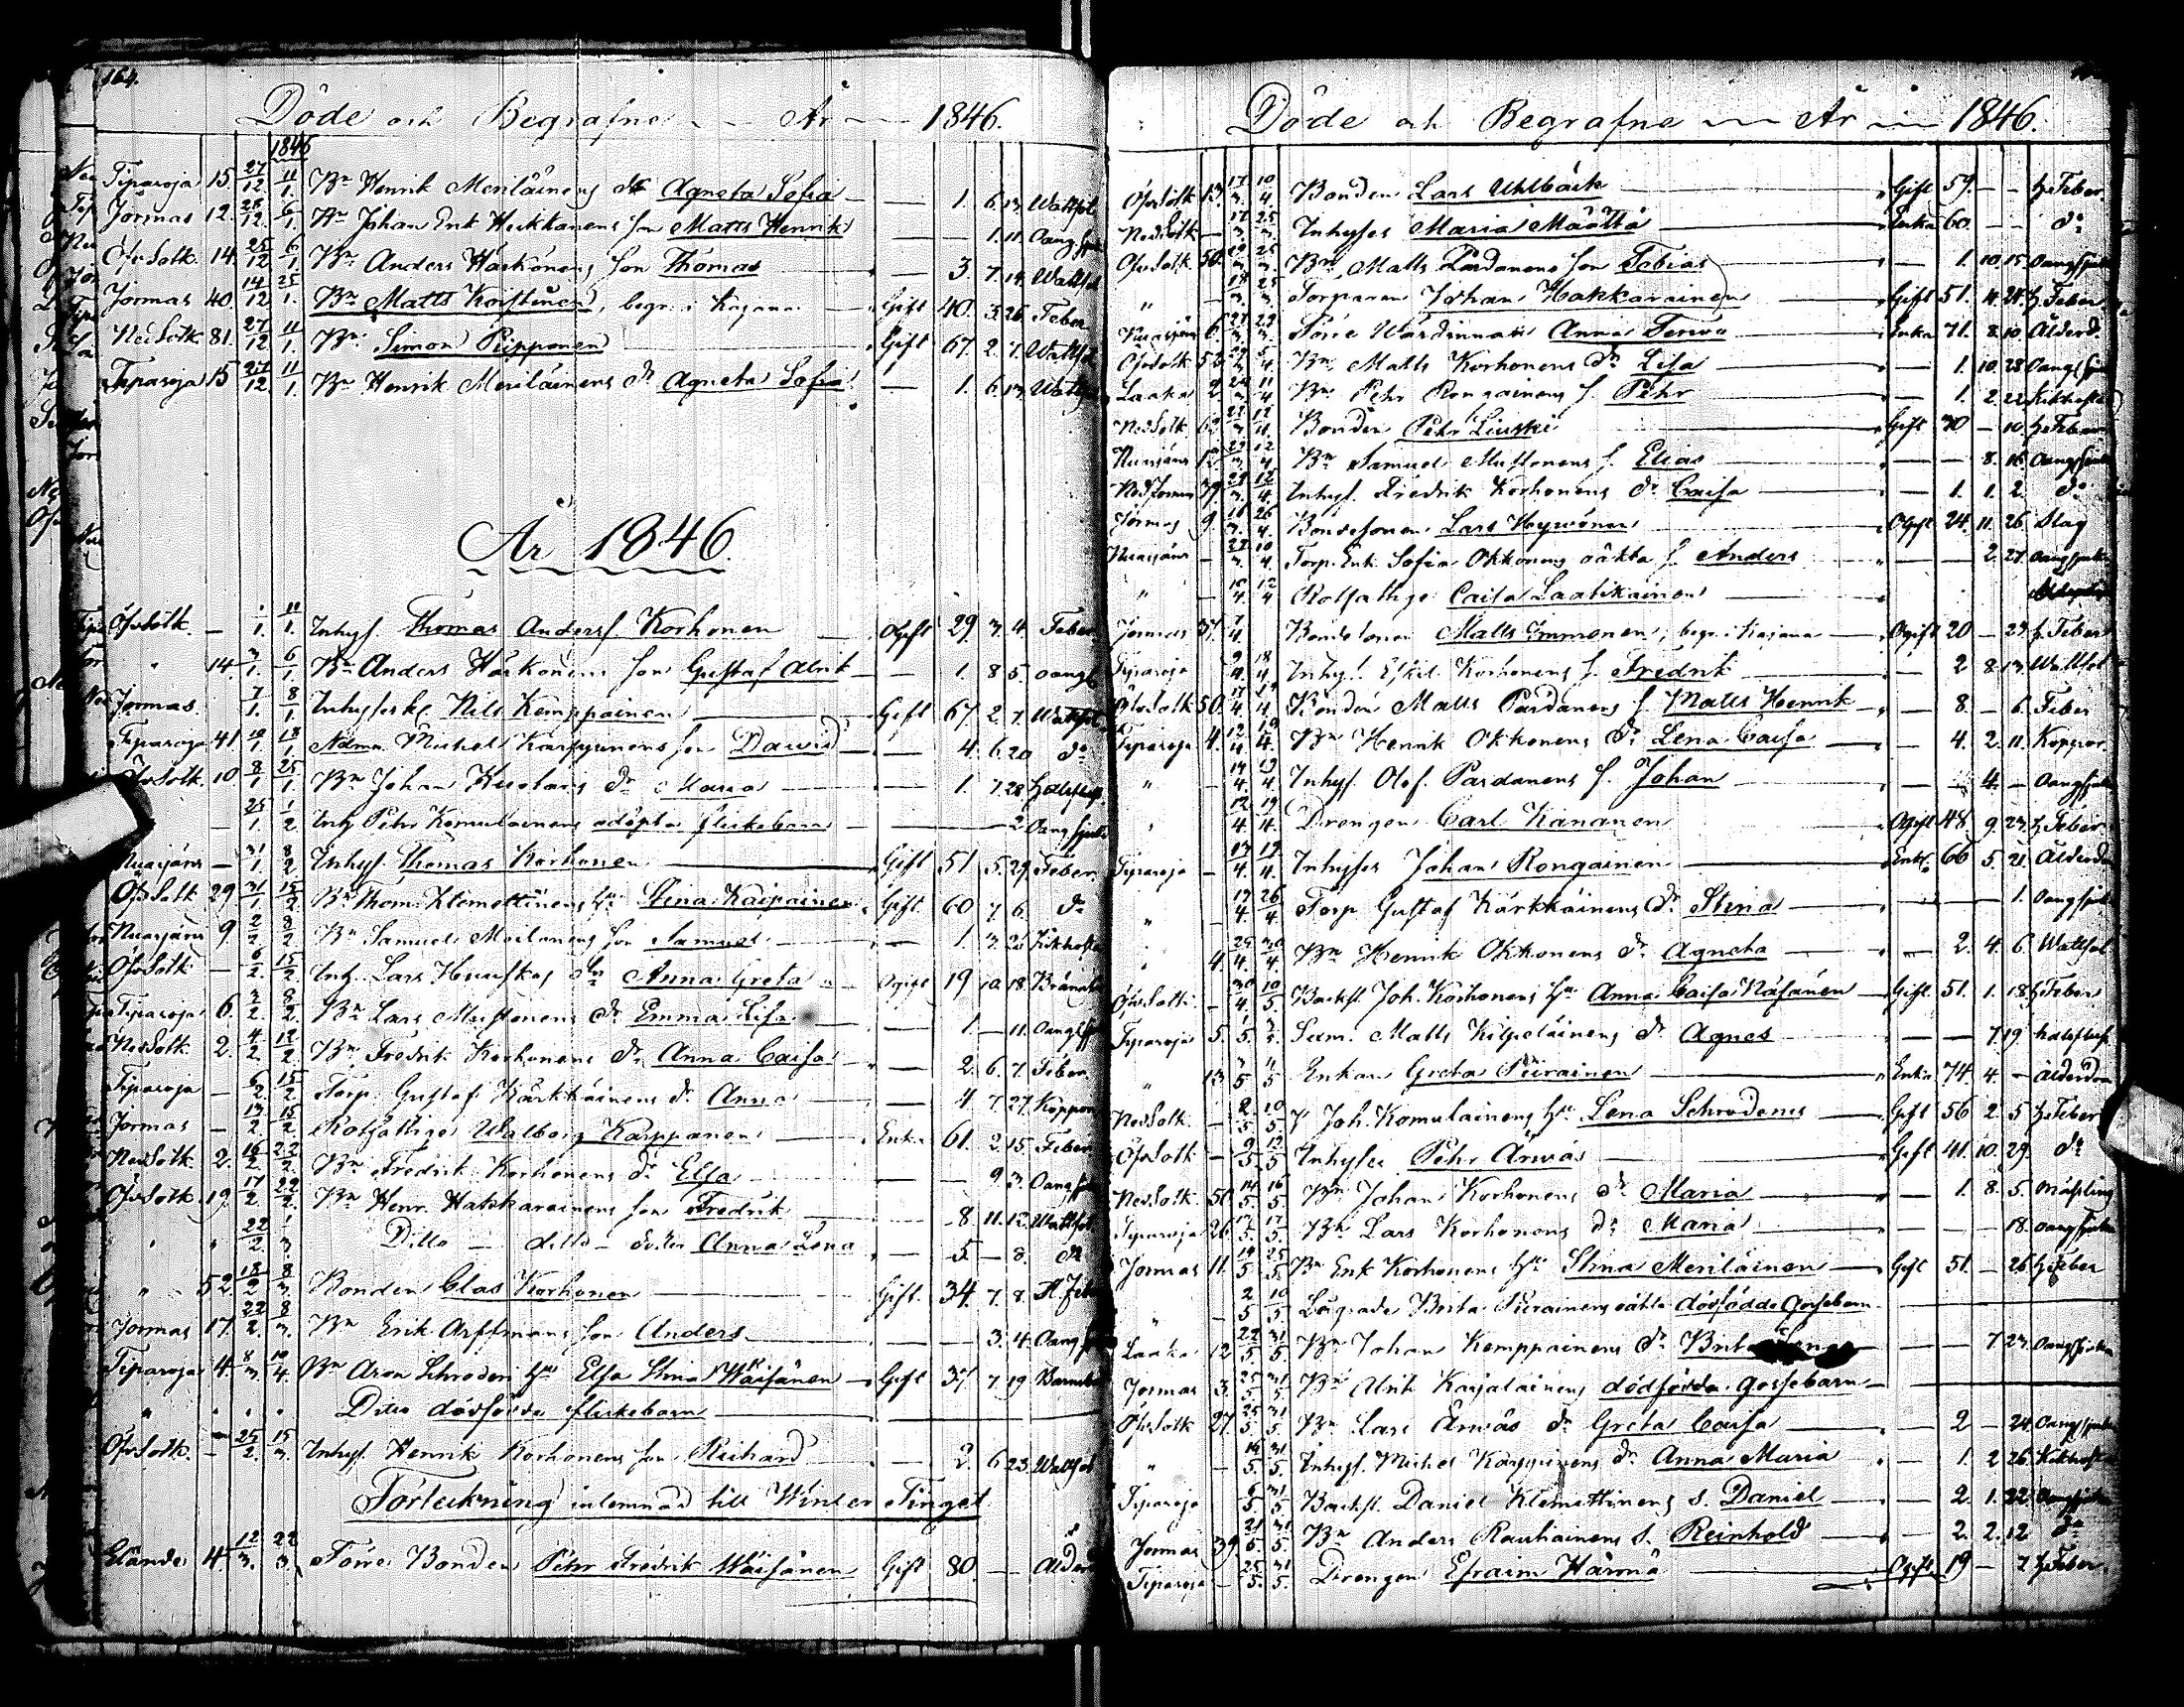 164.
Döde och Begrafne År 1846.
1846
Tiparoja 15 27/12 11/1. Bn Henrik Meriläinens dr Agneta Sofia — 1. 6. 13. Wattsot
Jormas 12. 28/12 6/1. Bn Johan Erik Heikkanens son Matts Henrik — 1. 11. Oang.sjuk
Öfv Sotk. 14. 25/12 6/1 Bn Anders Härkönens son Thomas — 3. 7. 14. Wattsot
Jormas 40. 14/12 25/1. Bn Matts Koistinen, begr. i Kajana — Gift 40. 3. 26. Feber
Ned Sotk 81. 27/12 11/1. Bn Simon Piipponen Gift 67. 2. 7. Wattsot
Tiparoja 15 27/12. 11/1. Bn Henrik Meriläinens dr Agneta Sofia — 1. 6. 13. Wattsot
År 1846.
Öfv Sotk. — 1/1. 11/1. Inhys. Thomas Anders. Korhonen Ogift 29 3. 4. Feber
" 14. 3/1. 6/1 Bn Anders Härkönens son Gustaf Alrik — 1. 8 5. Oang.
Jormas. 7/1. 8/1. Inhyseskl Nils Kemppainen Gift 67 2. 7. Wattsot
Tiparoja 41 10/1 18/1 Ndmn Michel Karppinens son Dawid — 4. 6. 20 do
Öfv Sotk. 10. 8/1 25/1. Bn Johan Keo dr Maria — 1. 7. 28
— 25/1. 1/2. Inh Pehr Komulainens odöpta flickebarn — 2 Oang.sjuk
Nuasjärvi — 31/1 8/2. Inhys. Thomas Korhonen Gift 51. 5. 29. Feber.
Öfv Sotk 29 31/1 15/2. Bn Thom. Klemettinens hu Stina Kaipainen Gift. 60 7. 6. do
Nuasjärvi 9 2/2 8/2. Bn Samuel Moilanens son Samuel — 1. 3. 21 Kikhosta
Öfv Sotk — 6/2. 15/2. Inh. Lars Huuskos dr Anna Greta Ogift 19 10. 18.
Tiparoja 6. 2/2 8/2. Bn Lars Mustonens dr Emma Lisa — 1. — 11. Oang.sj
Ned Sotk 2 4/2 12/2 Bn Fredrik Korhonens dr Anna Caisa — 2. 6. 7. Feber
Tiparoja — 6/2. 15/2 Torp. Gustaf Kärkkäinens dr Anna — 4 7. 27. Koppor
Jormas — 13/2 15/2 Rotfattiga Walborg Karppanen Enka 61. 2. 15. Feber
Ned Sotk. 2. 16/2. 22/2. Bn Fredrik Korhonens dr Elsa — 9 3. Oang.sj
Öfv Sotk 19. 17/2. 22/2. Bn Henr. Hakkarainens son Fredrik — 8 11. 12. Wattsot
" " 22/2. 1/3. Ditto — ditto — dotter Anna Lena — 5 — 8. do
" 52. 18/2 8/3. Bonden Clas Korhonen Gift. 34. 7. 8. H.feb
Jormas 17. 22/2. 8/3. Bn Erik Arffmans son Anders — 3. 4. Oang.sj
Tiparoja 4. 8/3. 10/4. Bn Aron Schroderi hu Elsa Stina Wäisänen — Gift 37. 7. 19 Barnsbörd
" Ditto dödfödde flickebarn
Öfv Sotk. — 25/2. 15/3. Inhys. Henrik Korhonens son Richard — 2. 6 23. Wattsot
Förteckning inlemnad till Winter Tinget
Eländes 4. 12/3. 22/3. Förre Bonden Pehr Fredrik Wäisänen Gift 80. — Ålder
Döde och Begrafne År 1846.
Öfv Sotk 13. 17/3. 10/4. Bonden Lars Uhlbäck Gift 59. — — h. Feber
Ned Sotk — 17/3. 25/3. Inhyses Maria Määttä Enka 60. — — do
Öfv Sotk 50. 25/3. Bn Matts Pardanens son Tobias — 1. 10. 15. Oang.sjuk
" — 18/3. 25/3. Torparen Johan Hakkarainen Gift 51. 11. 24. h. Feber
Nuasjärvi 6. 27/3 29/3. Förre Wärdinnan Anna Terwo Enka 71. 8. 10. Ålderd.
Öfv Sotk 53. 29/3 5/4. Bn Matts Korhonens dr Lisa — 1. 10. 28 Oang.sjuk
Laaka 2. 24/3 11/4 Bn Pehr Rongainens s. Pehr — 1. 2. 22 Kikhosta
Ned Sotk 62 22/3 12/4. Bonden Pehr Liuski Gift 70 — 10 h. Feber
Nuasjärvi 12. 29/3. 12/4 Bn Samuel Mustonens s. Elias — 8. 16 Oang.sjuk
Ned Jormas 39. 29/3. 12/4. Inhys. Fredrik Korhonens dr Caisa — 1. 1. 2. do
Jormas 9. 16/3. 26/4. Bondesonen Lars Heywönen Ogift 24. 11. 26. Slag
Nuasjärvi — 22/3. 10/4. Torp. Enk. Sofia Okkonens oäkta s. Anders — 2. 27. Oang.sjuk
" — 10/4. 12/4 Rotfattige Caisa Laatikainen
Jormas 37. 7/4. Bondesonen Matts Immonen, begr. i Kajana Ogift 20 — 23. h. Feber
Tiparoja 9/4. 18/4 Inhys. Eskil Korhonens s. Fredrik — 2 8. 13. Wattsot
Öfv Sotk 50. 17/4 19/4 Bonden Matts Pardanens s. Matts Henrik — 8. — 6. Feber
Tiparoja 4. 12/4 19/4. Bn Henrik Okkonens dr Lena Caisa — 4. 2. 11. Koppor
" — 14/4. 19/4 Inhys. Olof Pardanens s. Johan — 4. — Oang.sjuk
" 12/4. 19/4. Drengen Carl Kananen Ogift 48. 9. 23. h. Feber
Tiparoja — 13/4. 19/4. Inhyses Johan Rongainen Enkl. 66 5. 21. Ålderdom
" — 19/4. 26/4 Torp. Gustaf Kärkkäinens dr Stina — 1. Oang.sjuk
" 4. 25/4. 30/4. Bn Henrik Okkonens dr Agneta — 2. 4. 6. Wattsot
Öfv Sotk — 30/4 10/5. Backst. Joh. Korhonens hu Anna Caisa Näsänen — Gift. 51. 1. 18. h. Feber
Tiparoja 5. Mats Kilpeläinens dr Agnes — 7 19
" 13. 3/5 Enkan Greta Piirainen Enka 74. 4. — Ålderdom
Ned Sotk. — 2/5 10/5 Joh. Komulainens hu Lena Schroderus Gift 56 2. 5 h. Feber
Öfv Sotk — 9/5 12/5 Inhyses Pehr Arwas Gift 41. 10. 29. do
Ned Sotk. 50. 14/5. 16/5. Bn Johan Korhonens dr Maria — 1. 8. 5. Mäßling
Tiparoja 26 13/5. 17/5. Bn Lars Korhonens dr Maria — 18. Oang.sjuk
Jormas 11. 19/5 25/5. Bn Erik Korhonens hu Stina Meriläinen — Gift 51. — 26 h. Feber
" 2/5 10/5 Lägrade Brita Piirainens oäkta dödfödda gossebarn
Laaka 12 22/5. 31/5. Bn Johan Kemppainens dr Brita Lena — 7. 23. Oang.sjuk
Jormas 3. 25/5. 31/5. Bn Ulrik Karjalainens dödfödda gossebarn
Öfv Sotk 27. 25/5. 31/5. Bn Lars Ärwäs dr Greta Caisa — 2 — 24. Oang.sjuk
" — 14/5. 31/5. Inhys. Michel Karppinens dr Anna Maria — 1. 2 26. Kikhosta
Tiparoja 6/5. 31/5. Backst. Daniel Klemettinens s. Daniel — 2. 1. 22.
Jormas 39. 21/5. 31/5. Bn Anders Rauhainens s. Reinhold — 2. 2. 12 do
Tiparoja — 25/5. 31/5. Drengen Efraim Härmä Ogift 19 — 7 h. Feber.